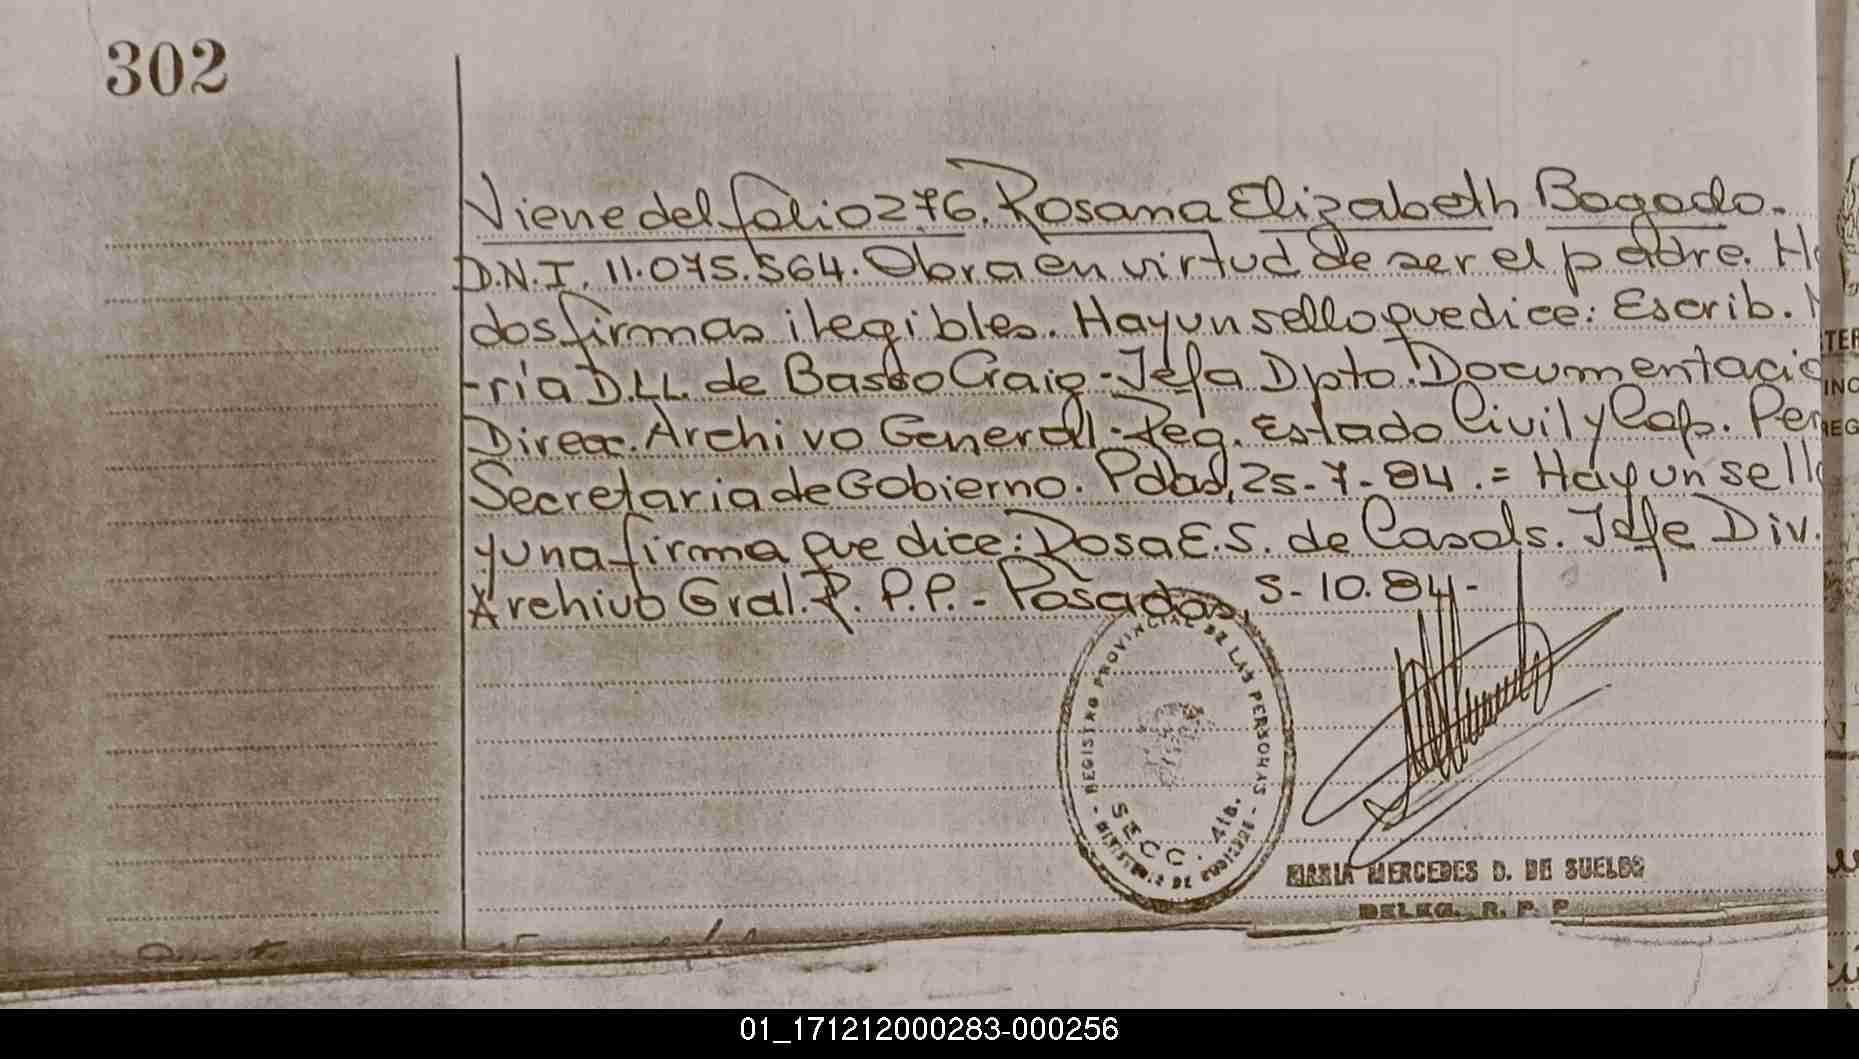 302
Viene del folio 276. Rosana Elizabeth Bogado.
D.N.I. 11.075.564. Obra en virtud de ser el padre. H
dos firmas ilegibles. Hay un sello que dice: Escrib. M
-ria D.LL. de Basso Craig - Jefa Dpto. Documentació
Direcc. Archivo General - Reg. Estado Civil y Cap. Per
Secretaria de Gobierno. Pdas, 25-7-84.= Hay un sello
y una firma que dice: Rosa E.S. de Casals. Jefe Div.
Archivo Gral. R. P.P. - Posadas, 5-10.84-
REGISTRO PROVINCIAL DE LAS PERSONAS
SECC.
MARIA MERCEDES D. DE SUELDO
DELEG. R. P. P
01_171212000283-000256